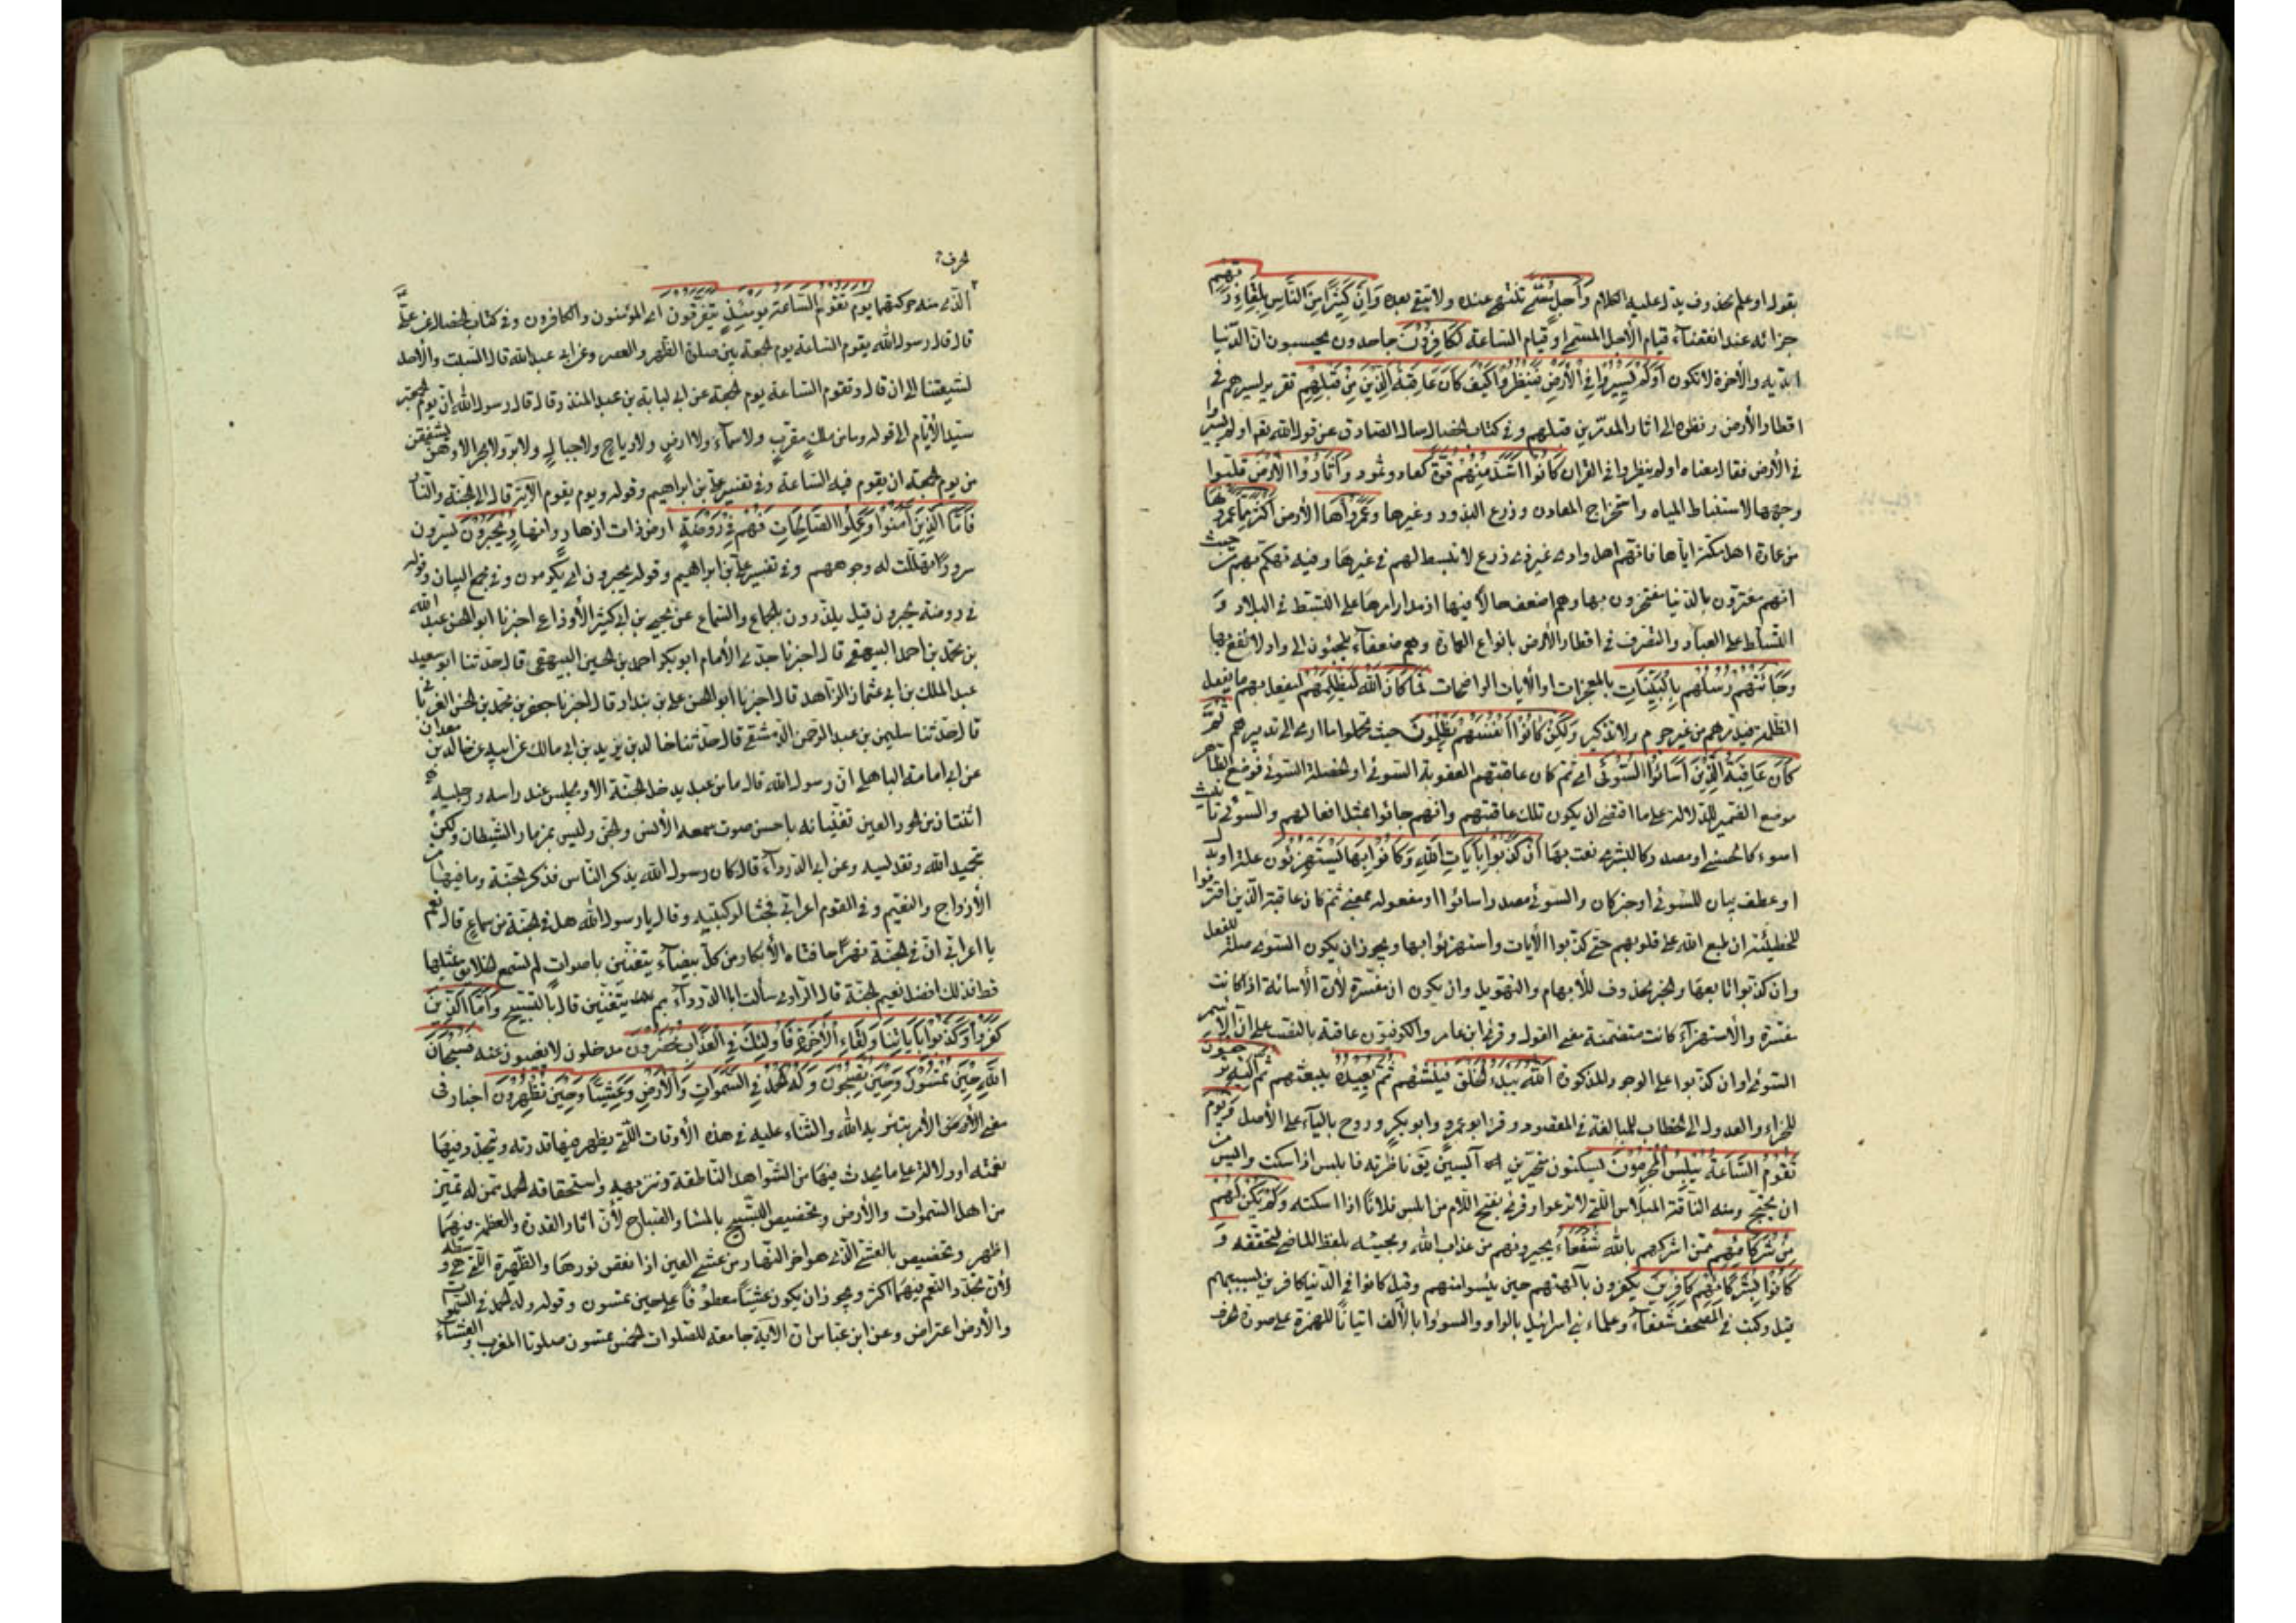 بقوله او علم محذوف يدل عليه الكلام وَأَجَلٍ مُسَمًّى تنتهي عنده ولا تبقى بعده وَإِنَّ كَثِيرًا مِنَ النَّاسِ بِلِقَاءِ رَبِّهِمْ
جزائه عند انقضاء قيام الأجل المسمى او قيام الساعة لَكَافِرُونَ جاحدون يحسبون ان الدنيا
ابدية والأخرة لا تكون أَوَلَمْ يَسِيرُوا فِي الْأَرْضِ فَيَنْظُرُوا كَيْفَ كَانَ عَاقِبَةُ الَّذِينَ مِنْ قَبْلِهِمْ تقرير لسيرهم في
اقطار الأرض ونظرهم الى اثار المدمرين قبلهم وفي كتاب الخصال سال الصادق عن قول الله تعم اولم يسيروا
في الأرض فقال معناه اولم ينظروا في القران كَانُوا أَشَدَّ مِنْهُمْ قُوَّةً كعاد وثمود وَأَثَارُوا الْأَرْضَ قلبوا
وجهها لاستنباط المياه واستخراج المعادن وذرع البذور وغيرها وَعَمَرُوهَا الأرض أَكْثَرَ مِمَّا عَمَرُوهَا
من عمارة اهل مكة اياها فانهم اهل واد غير ذي ذرع لا تبسط لهم في غيرها وفيه تهكم بهم من حيث
انهم مغترون بالدنيا مفتخرون بها وهم اضعف حالا فيها اذ مدار امرها على التبسط في البلاد و
التسلط على العباد والتصرف في اقطار الأرض بانواع العمارة وهم ضعفاء ملجئون الى واد لا نفع بها
وَجَاءَتْهُمْ رُسُلُهُمْ بِالْبَيِّنَاتِ بالمعجزات او الأيات الواضحات فَمَا كَانَ اللَّهُ لِيَظْلِمَهُمْ ليفعل بهم ما يفعل
الظلمة فيدمرهم من غير جرم ولا تذكير وَلَكِنْ كَانُوا أَنْفُسَهُمْ يَظْلِمُونَ حيث عملوا ما ادى الى تدميرهم ثُمَّ
كَانَ عَاقِبَةَ الَّذِينَ أَسَاءُوا السُّوأَى اي ثم كان عاقبتهم العقوبة السوئى او الخصلة السوئى فوضع الظاهر
موضع الضمير للدلالة على ما اقتضى ان يكون تلك عاقبتهم وانهم جاءوا بمثل افعالهم والسوئى تأنيث
اسوء كالحسنى او مصدر كالبشرى نعت بها أَنْ كَذَّبُوا بِآيَاتِ اللَّهِ وَكَانُوا بِهَا يَسْتَهْزِئُونَ علة او بدل
او عطف بيان للسوئى او خبر كان والسوئى مصدر اساءوا او مفعوله بمعنى ثم كان عاقبة الذين اقترفوا
الخطيئة ان طبع الله على قلوبهم حتى كذبوا الأيات واستهزئوا بها ويجوز ان يكون السوئى صلة للفعل
وان كذبوا تابعها والخبر محذوف للأبهام والتهويل وان يكون ان مفسرة لأن الأسائة اذا كانت
مفسرة والأستهزاء كانت متضمنة معنى القول وقرئ ابن عامر والكوفيون عاقبة بالنصب على ان الأسم
السوئى او ان كذبوا على الوجوه المذكورة اللَّهُ يَبْدَءُ الْخَلْقَ ينشئهم ثُمَّ يُعِيدُهُ يبعثهم ثُمَّ إِلَيْهِ تُرْجَعُونَ
للجزاء والعدول الى الخطاب للمبالغة في المقصود وقرء ابو عمرو وابو بكر وروح بالياء على الأصل وَيَوْمَ
تَقُومُ السَّاعَةُ يُبْلِسُ الْمُجْرِمُونَ يسكتون متحيرين آيسين يق ناظرته فابلس اذا سكت وايس من
ان يحتج ومنه الناقة المبلاس التي لا ترعوا وقرئ بفتح اللام من ابلس فلانا اذا اسكته وَلَمْ يَكُنْ لَهُمْ
مِنْ شُرَكَائِهِمْ ممن اشركهم بالله شُفَعَاءُ يجيرونهم من عذاب الله ومجيئه بلفظ الماضي لتحققه وَ
كَانُوا بِشُرَكَائِهِمْ كَافِرِينَ يكفرون بآلهتهم حين يئسوا منهم وقيل كانوا في الدنيا كافرين بسببهم
قيل وكتب في المصحف شفعاء وعلماء بني اسرائيل بالواو والسوؤا بالألف اثباتا للهمزة على صورة الحرف
الحرف
الذي منه حركتها يَوْمَ تَقُومُ السَّاعَةُ يَوْمَئِذٍ يَتَفَرَّقُونَ اي المؤمنون والكافرون وفي كتاب الخصال عن علي
قال قال رسول الله يقوم الساعة يوم الجمعة بين صلوة الظهر والعصر وعن ابي عبد الله قال السبت والأحد
لشيعتنا الى ان قال وتقوم الساعة يوم الجمعة عن ابي لبابة بن عبد المنذر قال قال رسول الله ان يوم الجمعة
سيد الأيام الى قوله وما من ملك مقرب ولا سماء ولا ارض ولا رياح ولا جبال ولا بر ولا بحر الا وهن يشفقن
من يوم الجمعة ان يقوم فيه الساعة وفي تفسير علي بن ابراهيم وقوله ويوم يقوم الآية قال الى الجنة والنار
فَأَمَّا الَّذِينَ آمَنُوا وَعَمِلُوا الصَّالِحَاتِ فَهُمْ فِي رَوْضَةٍ ارض ذات ازهار وانهار يُحْبَرُونَ يسرون
سرورا تهللت له وجوههم وفي تفسير علي بن ابراهيم وقوله يحبرون اي يكرمون وفي مجمع البيان وقوله
في روضة يحبرون قيل يلذذون بالجماع والسماع عن يحيى بن ابي كثير الأوزاعي اخبرنا ابو الحسن عبد الله
بن محمد بن احمد البيهقي قال اخبرنا جدي الأمام ابو بكر احمد بن الحسين البيهقي قال حدثنا ابو سعيد
عبد الملك بن ابي عثمان الزاهد قال اخبرنا ابو الحسن علي بن بندار قال اخبرنا جعفر بن محمد بن الحسن الفريابي
قال حدثنا سليمن بن عبد الرحمن الدمشقي قال حدثنا خالد بن يزيد بن ابي مالك عن ابيه عن خالد بن معدان
عن ابي امامة الباهلي ان رسول الله قال ما من عبد يدخل الجنة الا ويجلس عند راسه ورجليه
اثنتان من الحور العين تغنيانه باحسن صوت سمعه الأنس والجن وليس بمزمار الشيطان ولكن
بتحميد الله وتقديسه وعن ابي الدرداء قال كان رسول الله يذكر الناس فذكر الجنة وما فيها من
الأزواج والنعيم وفي القوم اعرابي فجثا لركبتيه وقال يا رسول الله هل في الجنة من سماع قال نعم
يا اعرابي ان في الجنة نهرا حافتاه الأبكار من كل بيضاء يتغنين باصوات لم تسمع الخلائق بمثلها
قط فذلك افضل نعيم الجنة قال الراوي سألت ابا الدرداء بم يتغنين قال بالتسبيح وَأَمَّا الَّذِينَ
كَفَرُوا وَكَذَّبُوا بِآيَاتِنَا وَلِقَاءِ الْآخِرَةِ فَأُولَئِكَ فِي الْعَذَابِ مُحْضَرُونَ مدخلون لا يغيبون عنه فَسُبْحَانَ
اللَّهِ حِينَ تُمْسُونَ وَحِينَ تُصْبِحُونَ وَلَهُ الْحَمْدُ فِي السَّمَوَاتِ وَالْأَرْضِ وَعَشِيًّا وَحِينَ تُظْهِرُونَ اخبار في
معنى الأمر بتنزيه الله والثناء عليه في هذه الأوقات التي يظهر فيها قدرته وتجدد فيها
نعمته او دلالة على ما يحدث فيها من الشواهد الناطقة وتنزيهه واستحقاقه الحمد ممن له تميز
من اهل السموات والأرض وتخصيص التسبيح بالمساء والصباح لأن اثار القدرة والعظمة فيهما
اظهر وتخصيص بالعشي الذي هو اخر النهار من عشى العين اذا نقص نورها والظهيرة التي هي وسطه
لأن تجدد النعم فيهما اكثر ويجوز ان يكون عشيا معطوفا على حين تمسون وقوله وله الحمد في السموات
والأرض اعتراض وعن ابن عباس ان الآية جامعة للصلوات الخمس تمسون صلوتا المغرب والعشاء